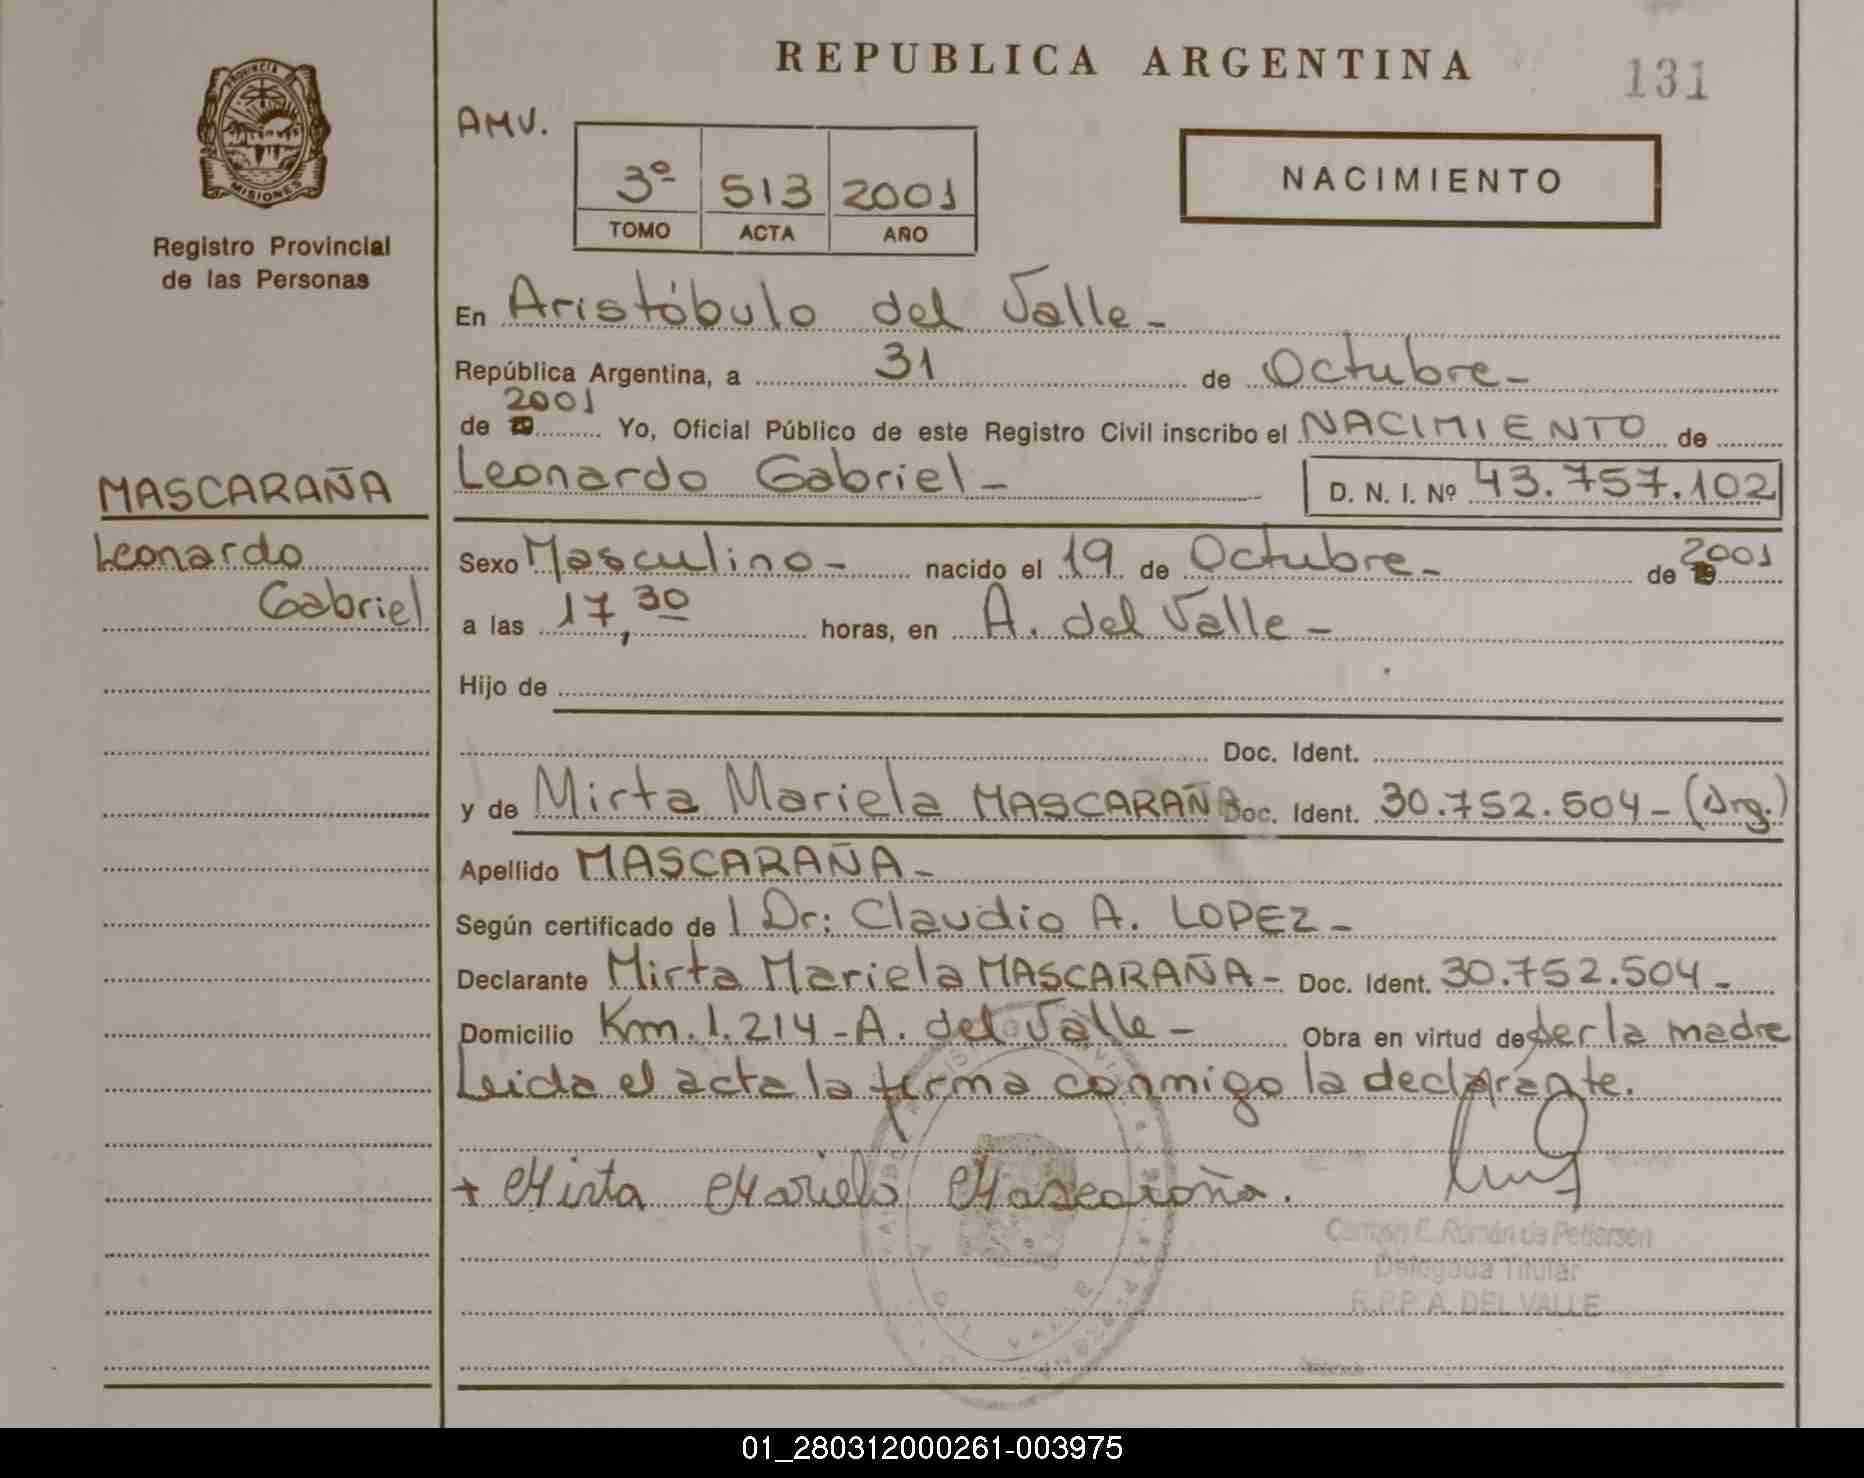 REPUBLICA ARGENTINA
131
PROVINCIA
MISIONES
Registro Provincial
de las Personas
AMV.
3º 513 2001
TOMO ACTA AÑO
NACIMIENTO
En Aristóbulo del Valle -
República Argentina, a 31 de Octubre -
de 19 2001 Yo, Oficial Público de este Registro Civil inscribo el NACIMIENTO de
Leonardo Gabriel - D. N. I. Nº 43.757.102
MASCARAÑA
Leonardo
Gabriel
Sexo Masculino - nacido el 19 de Octubre - de 19 2001
a las 17,30 horas, en A. del Valle -
Hijo de
Doc. Ident.
y de Mirta Mariela MASCARAÑA Doc. Ident. 30.752.504 - (Arg.)
Apellido MASCARAÑA -
Según certificado de l Dr: Claudio A. LOPEZ -
Declarante Mirta Mariela MASCARAÑA - Doc. Ident. 30.752.504 -
Domicilio Km. 1.214 - A. del Valle - Obra en virtud de ser la madre
Leida el acta la firma conmigo la declarante.
+ Mirta Mariela Mascaraña.
Carmen E. Román de Petterson
Delegada Titular
R.P.P. A. DEL VALLE
01_280312000261-003975